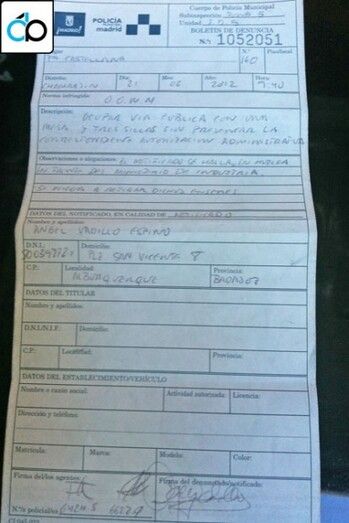 madrid
POLICÍA MUNICIPAL
madrid
Cuerpo de Policía Municipal
Subinspección ZONA 5
Unidad
BOLETIN DE DENUNCIA
N.º: 1052051
Lugar
Pº CASTELLANA
N.º
160
Piso/local
Distrito
CHAMARTIN
Día
21
Mes
06
Año
2012
Hora
Norma infringida:
Descripción: OCUPAR VIA PUBLICA CON UNA
MESA Y TRES SILLAS SIN PRESENTAR LA
CORRESPONDIENTE AUTORIZACION ADMINISTRATIVA
Observaciones o alegaciones: EL NOTIFICADO SE HALLA EN HUELGA
DEL MINISTERIO DE INDUSTRIA
SE NIEGA A RETIRAR DICHOS ENSERES
DATOS DEL NOTIFICADO, EN CALIDAD DE NOTIFICADO
Nombre y apellidos:
ANGEL VADILLO ESPINO
D.N.I.
Domicilio:
PLZ SAN VICENTE 8
C.P.
Localidad
ALBUQUERQUE
Provincia:
BADAJOZ
DATOS DEL TITULAR
Nombre y apellidos:
D.N.I./N.I.F.
Domicilio:
C.P.
Localidad:
Provincia:
DATOS DEL ESTABLECIMIENTO/VEHÍCULO
Nombre o razón social:
Actividad autorizada:
Licencia:
Dirección y teléfono:
Matrícula:
Marca:
Modelo:
Color:
Firma del/los agentes:
Firma del denunciado/notificado:
N.º/s policial/es